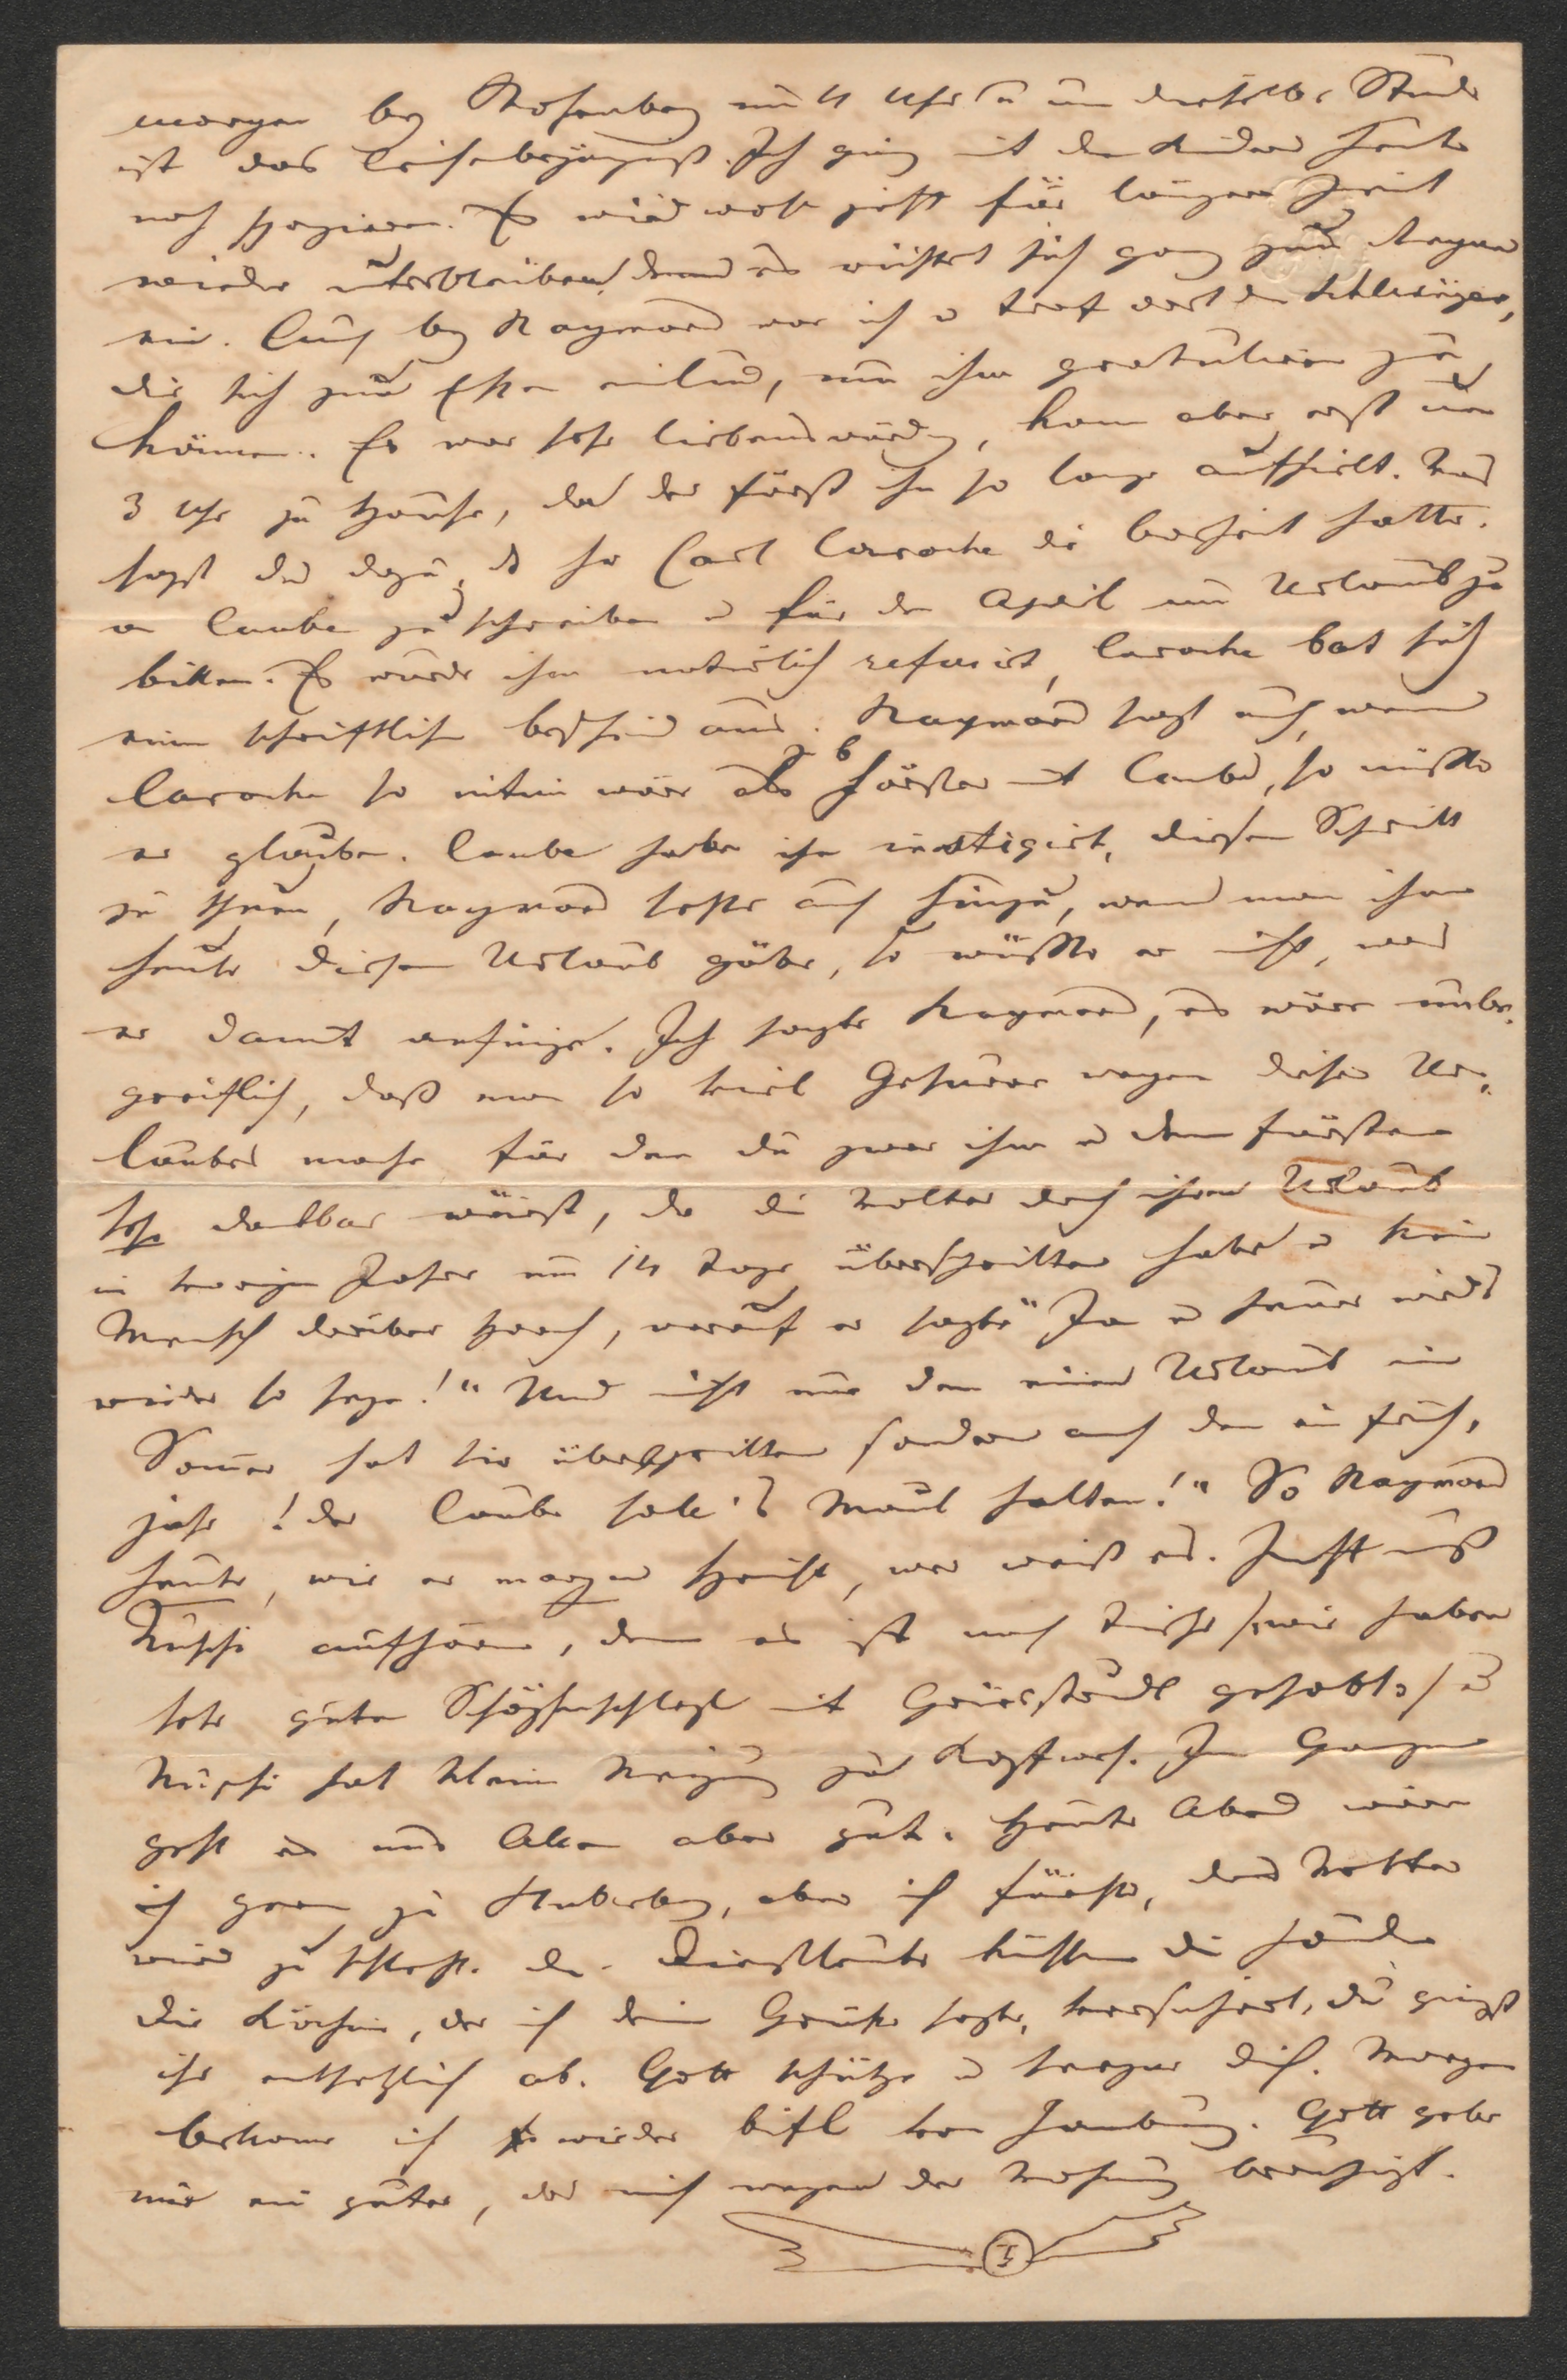 morgen bey Rosenberg um 4 Uhr u um dieselbe Stunde
ist das Leichenbegängniß. Ich ging mit den Kindern heute
noch spazieren. Es wird wohl jetzt für längere Zeit
wieder unterbleiben, denn es richtet sich ganz zum Regen
ein. Auch bey Raymond war ich u traf dort den
die sich zum Essen einlud, um ihm gratuliren zu
können. Er war sehr liebenswürdig, kam aber erst um
3 Uhr zu Hause, da der Fürst ihn so lange aufhielt. Was
sagst du dazu, daß Carl Laroche die Bosheit hatte,
an Laube zu schreiben u für den April um Urlaub zu
bitten. Es wurde ihm natürlich refusirt, Laroche bat sich
einen schriftlichen Bescheid aus. Raymond sagt auch, wenn
Laroche so intim wäre als Förster mit Laube, so müßte
er glauben, Laube habe ihn instigirt, diesen Schritt
zu thun, Raymond setzte auch hinzu, wenn man ihm
heute diesen Urlaub gäbe, so wüßte er nicht, was
er damit anfinge. Ich sagte Raymond, es wäre unbe-
greiflich, daß man so viel Geschrei wegen dieses Ur-
laubes mache für den du zwar ihm u dem Fürsten
sehr dankbar wärst, da die Wolter doch ihren Urlaub
im vorigen Jahre um 14 Tage überschritten habe u kein
Mensch darüber sprach, worauf er sagte "Ja u heuer wird's
wieder so seyn!" Und nicht nur den einen Urlaub im
Sommer hat sie überschritten sondern auch den im Früh-
jahr! der Laube soll's Maul halten!" So Raymond
heute, wie er morgen spricht, wer weiß es. Jetzt muß
aufhören, denn es ist nach Tische /: wir haben
sehr guten Schöpsenschlegel mit gehabt :/ u
hat kleine Neigung zu Kopfweh. Im Ganzen
geht es uns Allen aber gut. Heute Abend wäre
ich gern zu , aber ich fürchte, das Wetter
wird zu schlecht. Die Dienstleute küssen die Hände
die Köchin, der ich deine Grüße sagte, versichert, du gingst
ihr entsetzlich ab. Gott schütze u segne dich. Morgen
bekomme ich wieder Brief von Hamburg. Gott gebe
mir ein guter, der mich wegen der Wohnung beruhigt.
I